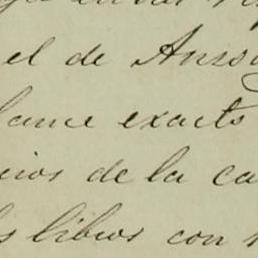 el de
lance exacto
cios de la ca
s libros con